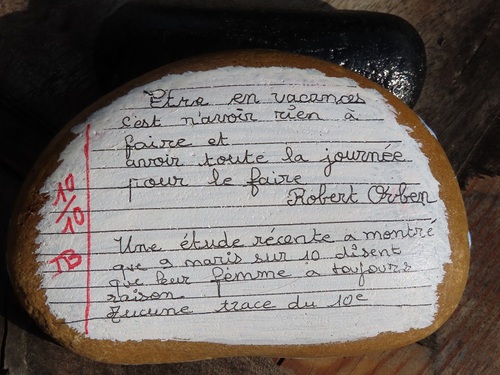 Etre en vacances
c'est n'avoir rien à
faire et
avoir toute la journée
pour le faire
Robert Orben
10/10
TB
Une étude récente a montré
que 9 maris sur 10 disent
que leur femme a toujours
raison
Aucune trace du 10e